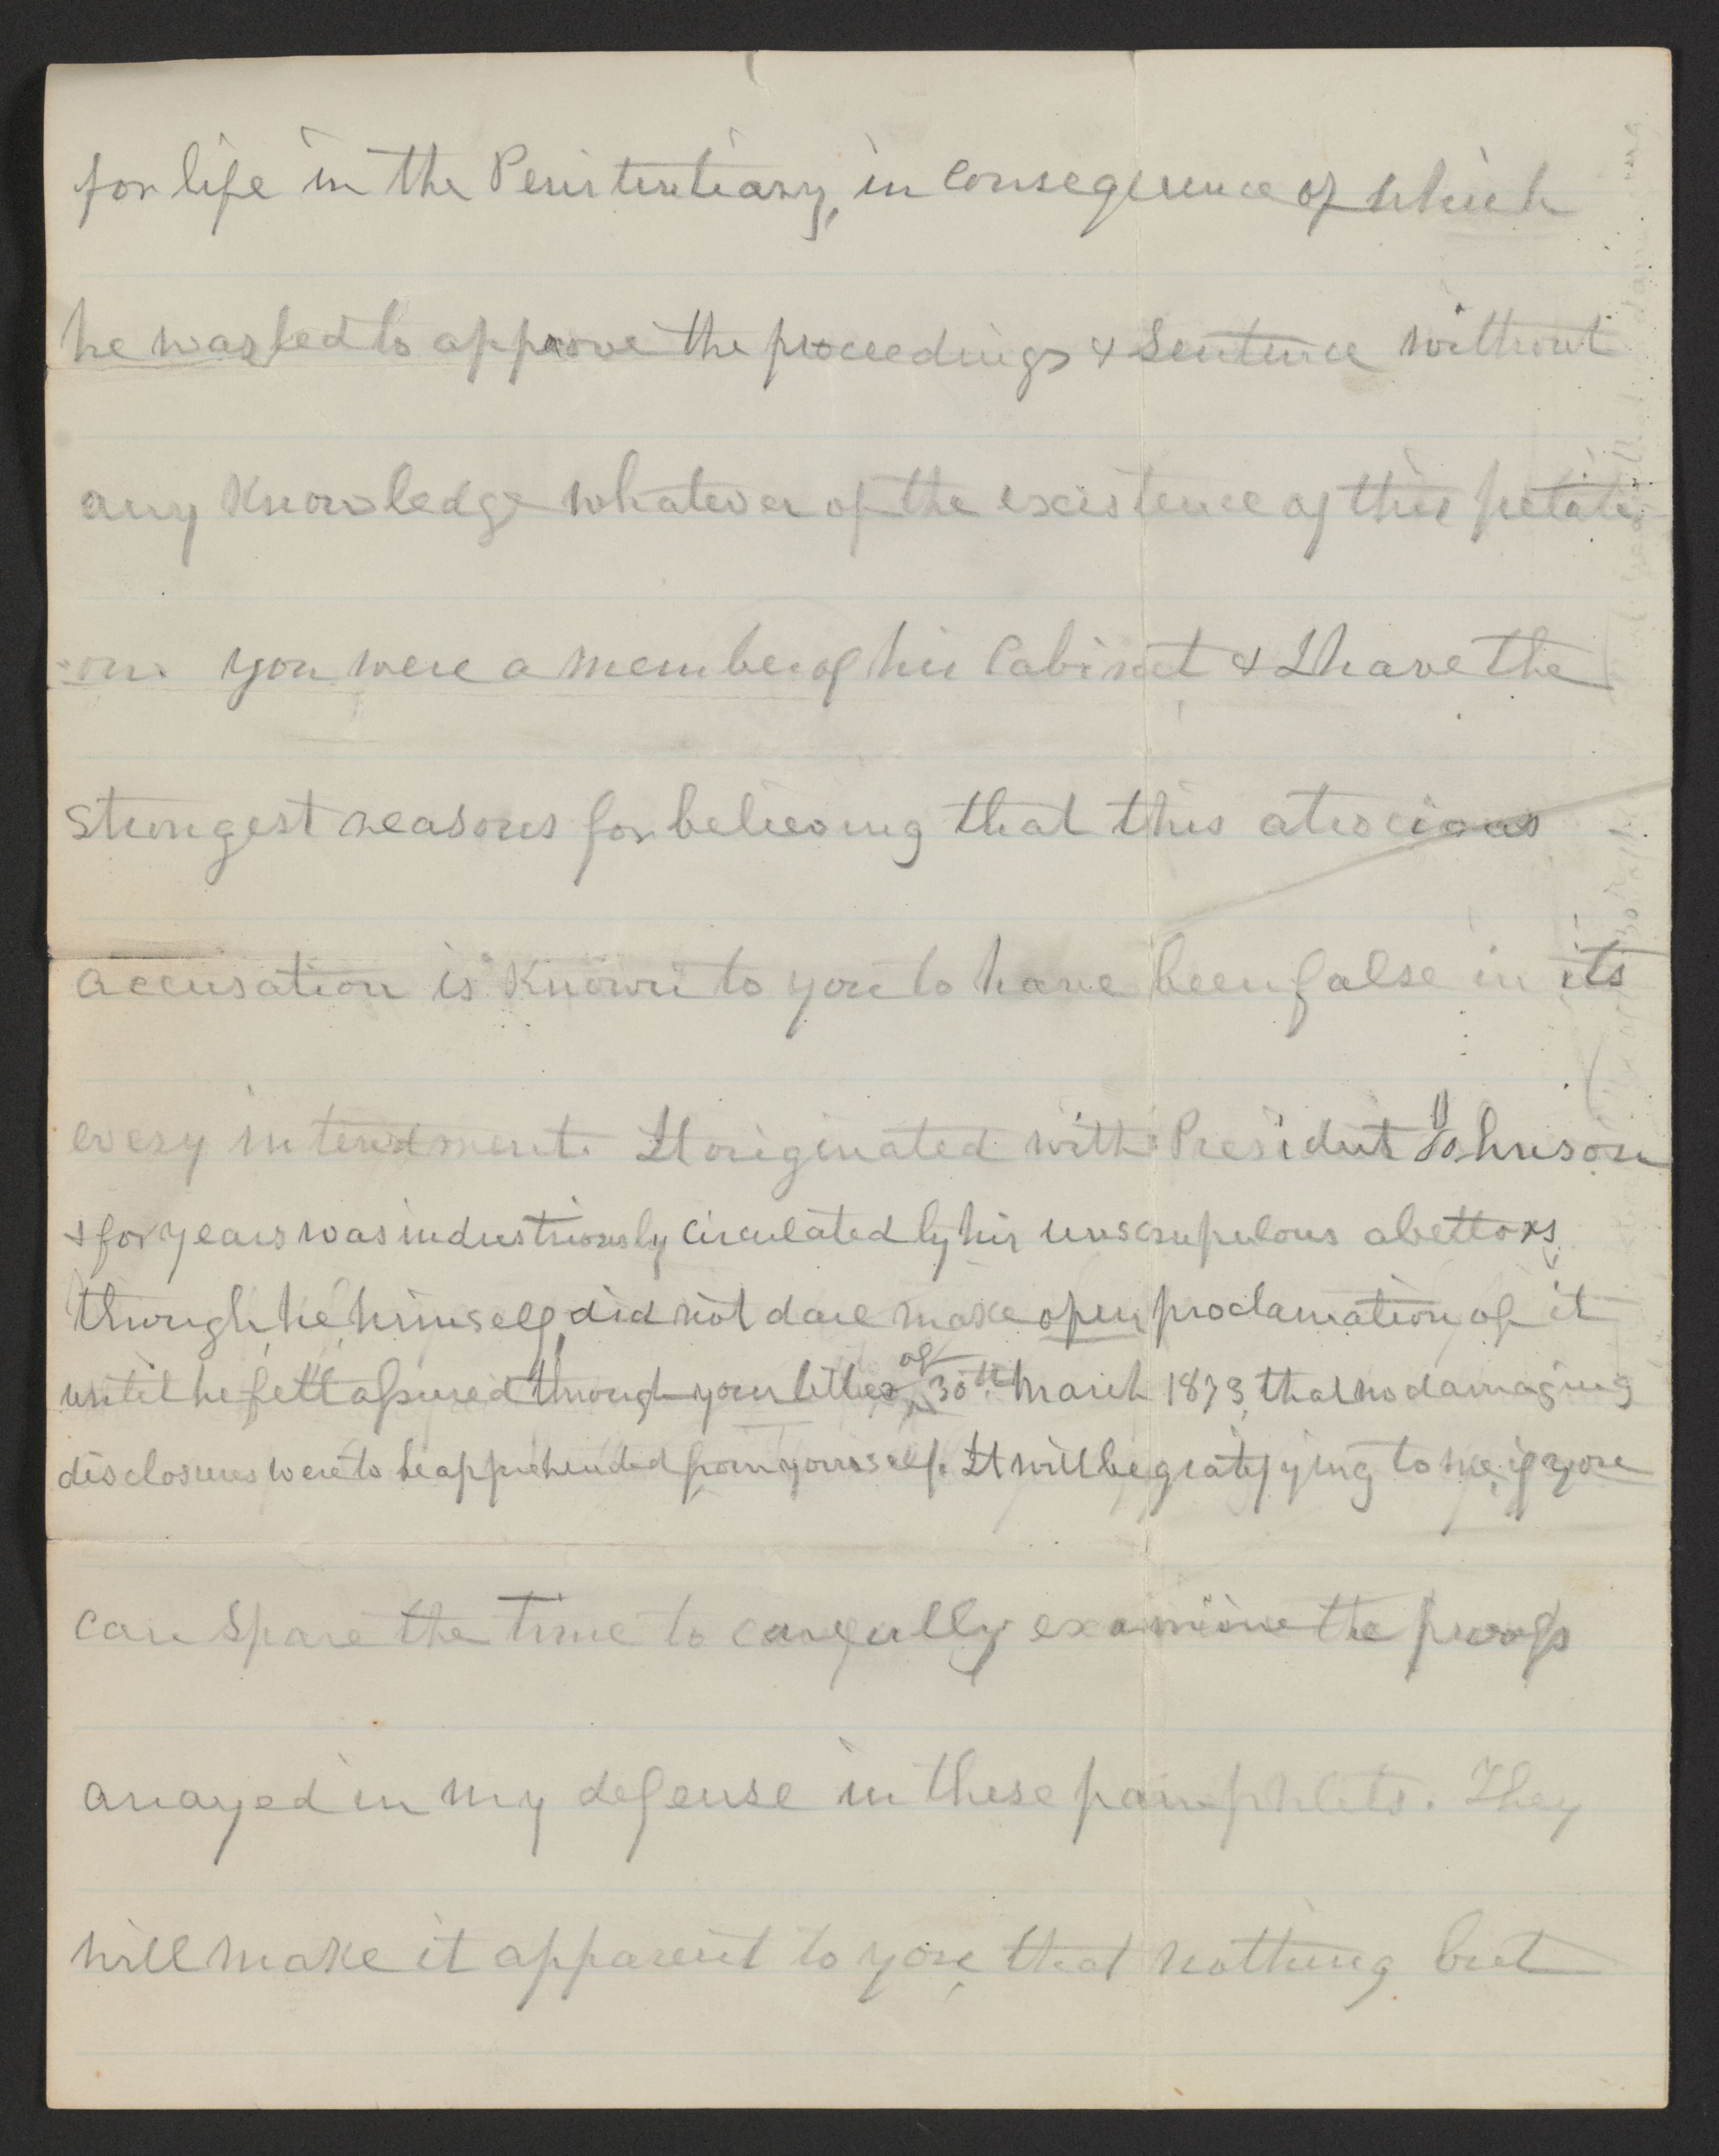 for life in the Penitentiary, in consequence of which
he was led to approve the proceedings & sentence without
any knowledge whatever of the existence of this petiti-
-on. you were a member of his Cabinet & I have the
strongest reasons for believing that this atrocious
accusation is known to you to have been false in its
every intendment. It originated with President Johnson
& for years was industriously circulated by his unscrupulous abettors,
though he himself did not dare make open proclamation of it
until he felt assured through your letter of 30th March 1873, that no damaging
disclosures were to be apprehended from yourself. It will be gratifying to me, if you
can spare the time to carefully examine the proofs
arrayed in my defense in these pamphlets. They
will make it apparent to you, that nothing but